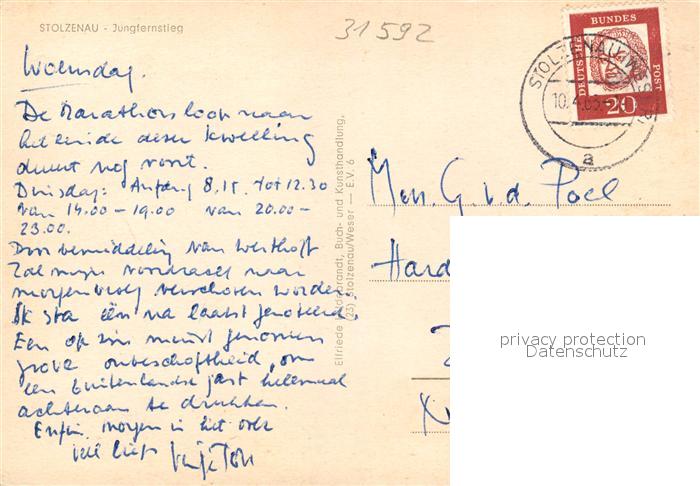 STOLZENAU - Jungfernstieg
31592
Woensdag.
De Marathonloop naar
het einde dezer kwelling
duurt nog voort.
Dinsdag: Anfang 8.15 tot 12.30
van 14.00 - 19.00 van 20.00 -
23.00.
Door bemiddeling van Westhoff
zal mijn voordracht naar
morgenvroeg verschoven worden.
Ik sta één na laatst genoteerd.
Een op zijn minst genomen
grove onbeschoftheid, om
een buitenlandse gast helemaal
achteraan te drukken.
Enfin, morgen is het over
veel liefs
Elfriede Hildebrandt, Buch- und Kunsthandlung,
(23) Stolzenau/Weser — E.V. 6
DEUTSCHE BUNDES POST
20
STOLZENAU (WESER)
10.4.63
a
Mevr. G. v. d. Poel
Hard
privacy protection
Datenschutz